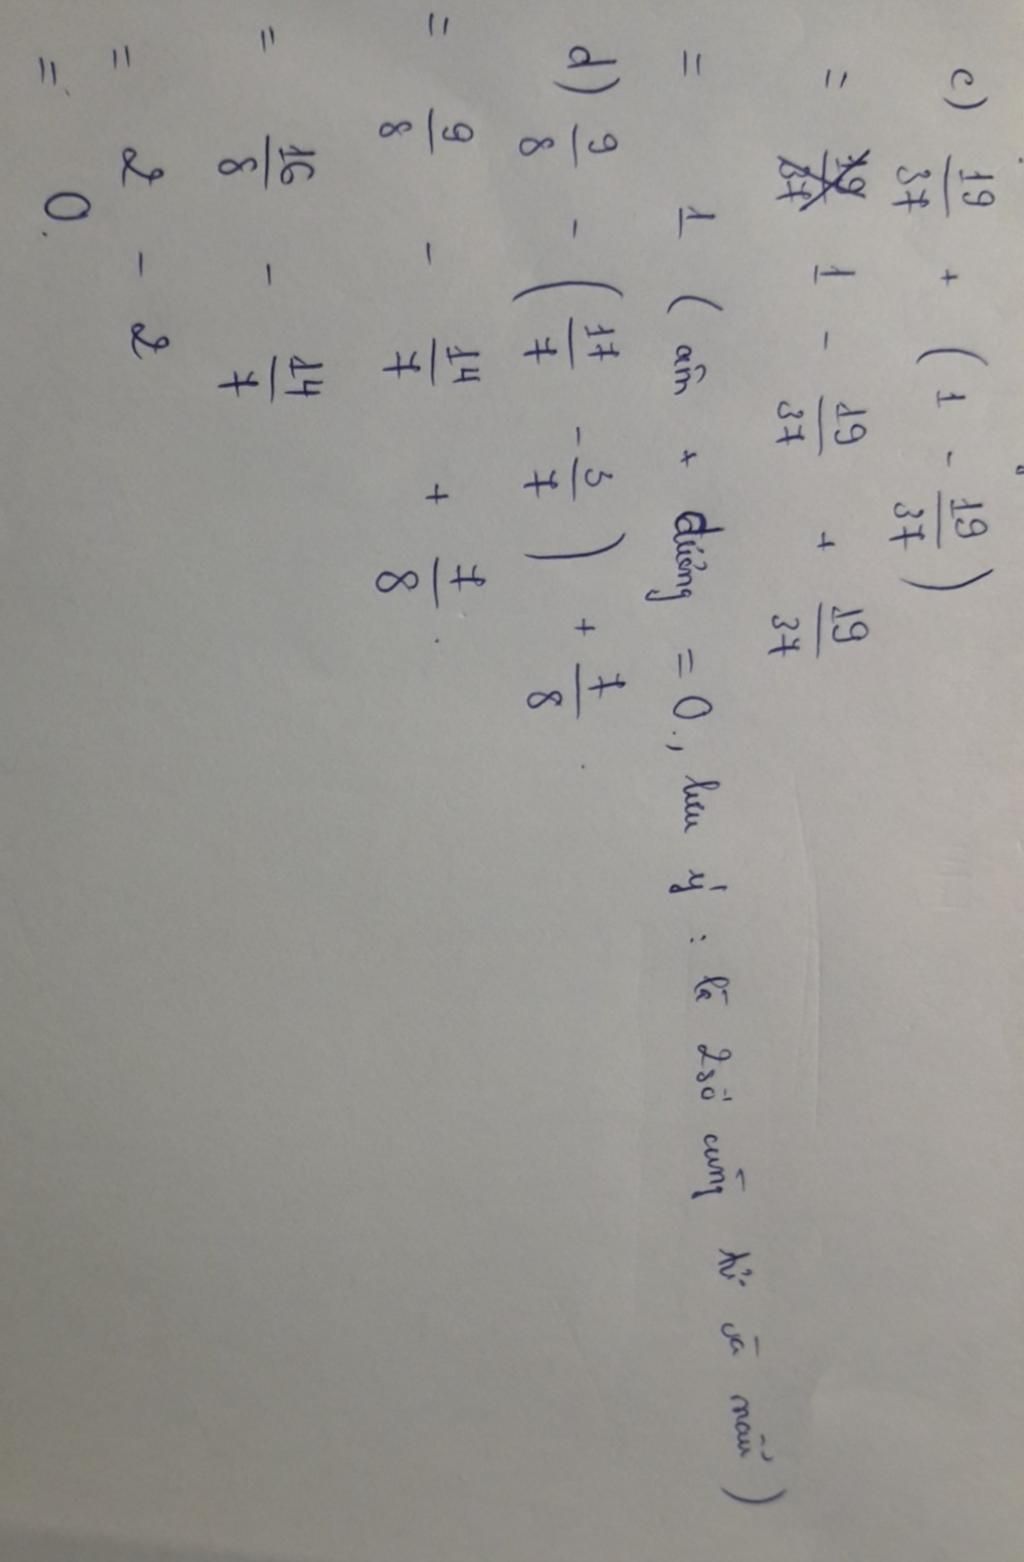 c) 19/37 + (1 - 19/37)
= 1 - 19/37 + 19/37
= 1 (âm + dương = 0, lưu ý: là 2 số cùng tử và mẫu)
d) 9/8 - (17/7 - 3/7) + 7/8
= 9/8 - 14/7 + 7/8
= 16/8 - 14/7
= 2 - 2
= 0.